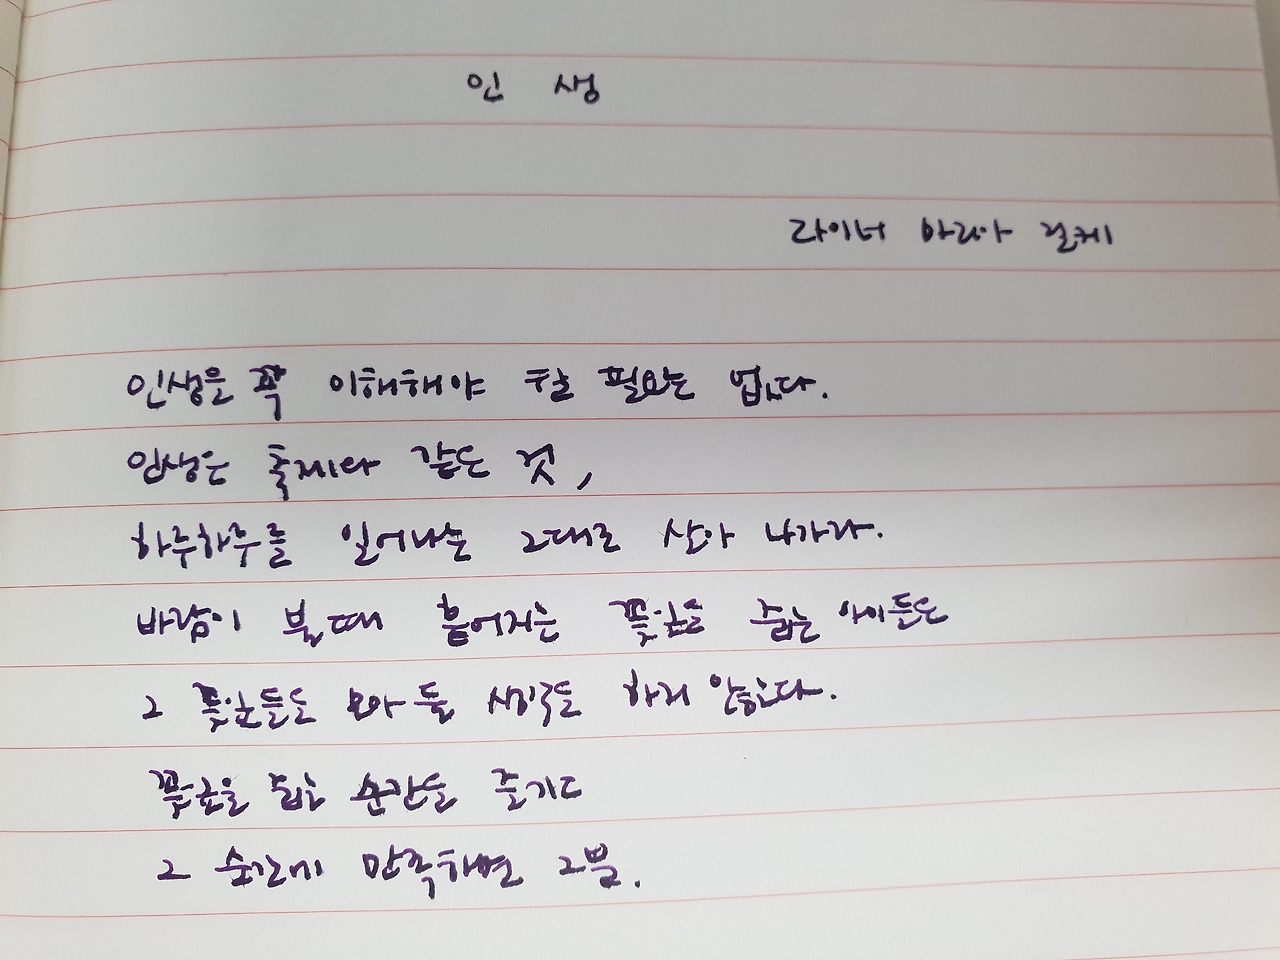 인 생
라이너 마리아 릴케
인생을 꼭 이해해야 할 필요는 없다.
인생은 축제와 같은 것,
하루하루를 일어나는 그대로 살아 나가라.
바람이 불 때 흩어지는 꽃잎을 줍는 아이들은
그 꽃잎들을 모아 둘 생각은 하지 않는다.
꽃잎을 줍는 순간을 즐기고
그 순간에 만족하면 그뿐.